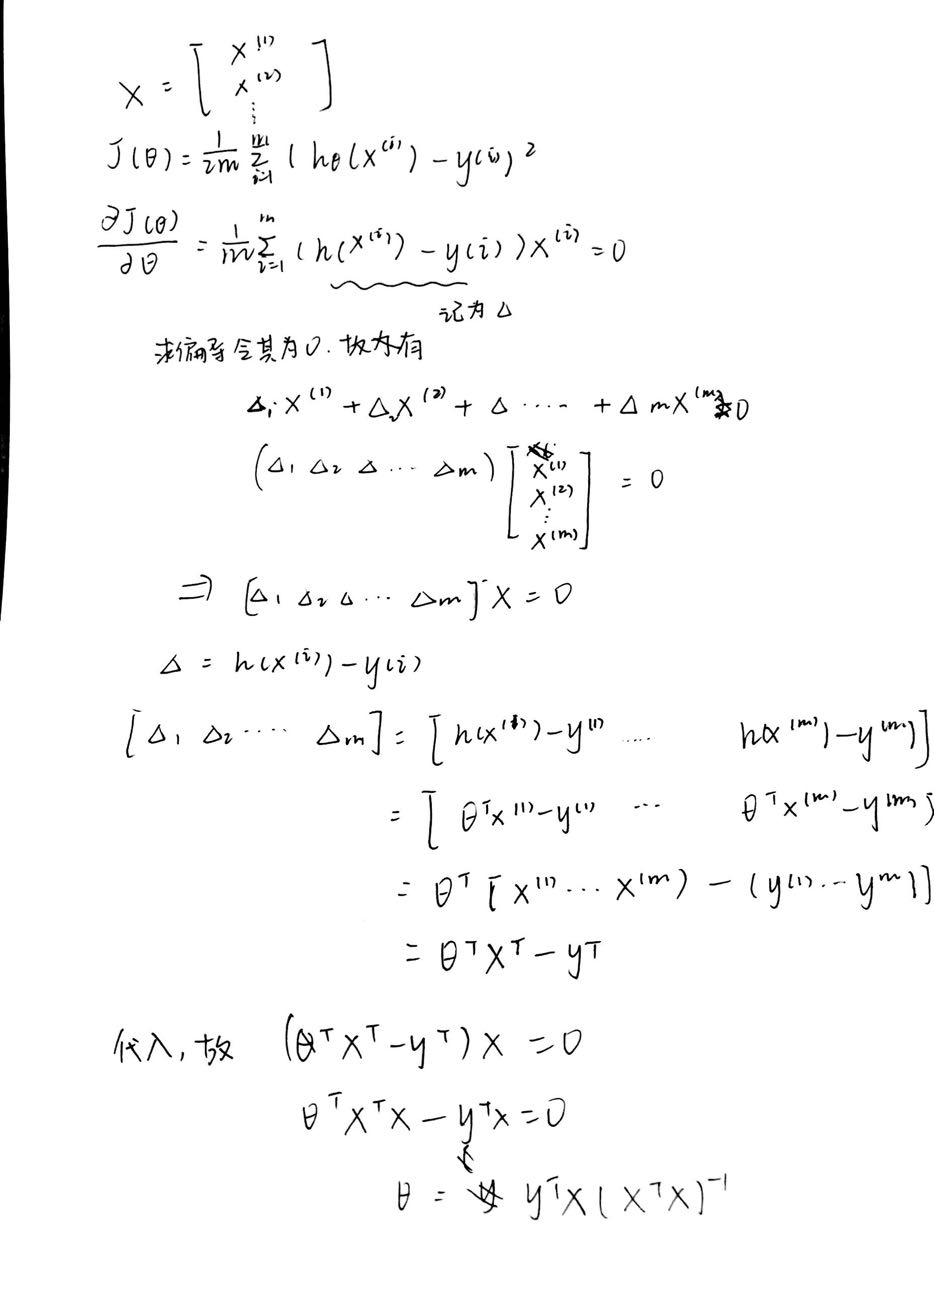 X = [ x^{(1)} x^{(2)} ⋮ ]
J(θ) = \frac{1}{2m} \sum_{i=1}^{m} (hθ(x^{(i)}) - y(i)^2
\frac{∂J(θ)}{∂θ} = \frac{1}{m} \sum_{i=1}^{m} (h(x^{(i)}) - y(i)) x^{(i)} = 0
记为 Δ
求偏导令其为0.故有
Δ_1·x^{(1)} + Δ_2x^{(2)} + Δ ····· + Δmx^{(m)}=0
(Δ_1 Δ_2 Δ ··· Δm) [ x^{(1)} x^{(2)} ⋮ x^{(m)} ] = 0
⇒ [Δ_1 Δ_2 Δ ··· Δm] X = 0
Δ = h(x^{(i)}) - y(i)
[Δ_1 Δ_2 ···· Δm] = [h(x^{(1)}) - y^{(1)} ···· h(x^{(m)}) - y^{(m)}]
= [θ^Tx^{(1)} - y^{(1)} ··· θ^Tx^{(m)} - y^{(m)}]
= θ^T [x^{(1)} ··· x^{(m)}) - (y^{(1)} ·· y^{m)}]
= θ^TX^T - y^T
代入,故 (θ^TX^T - y^T) X = 0
θ^TX^TX - y^TX = 0
θ = y^TX(X^TX)^{-1}